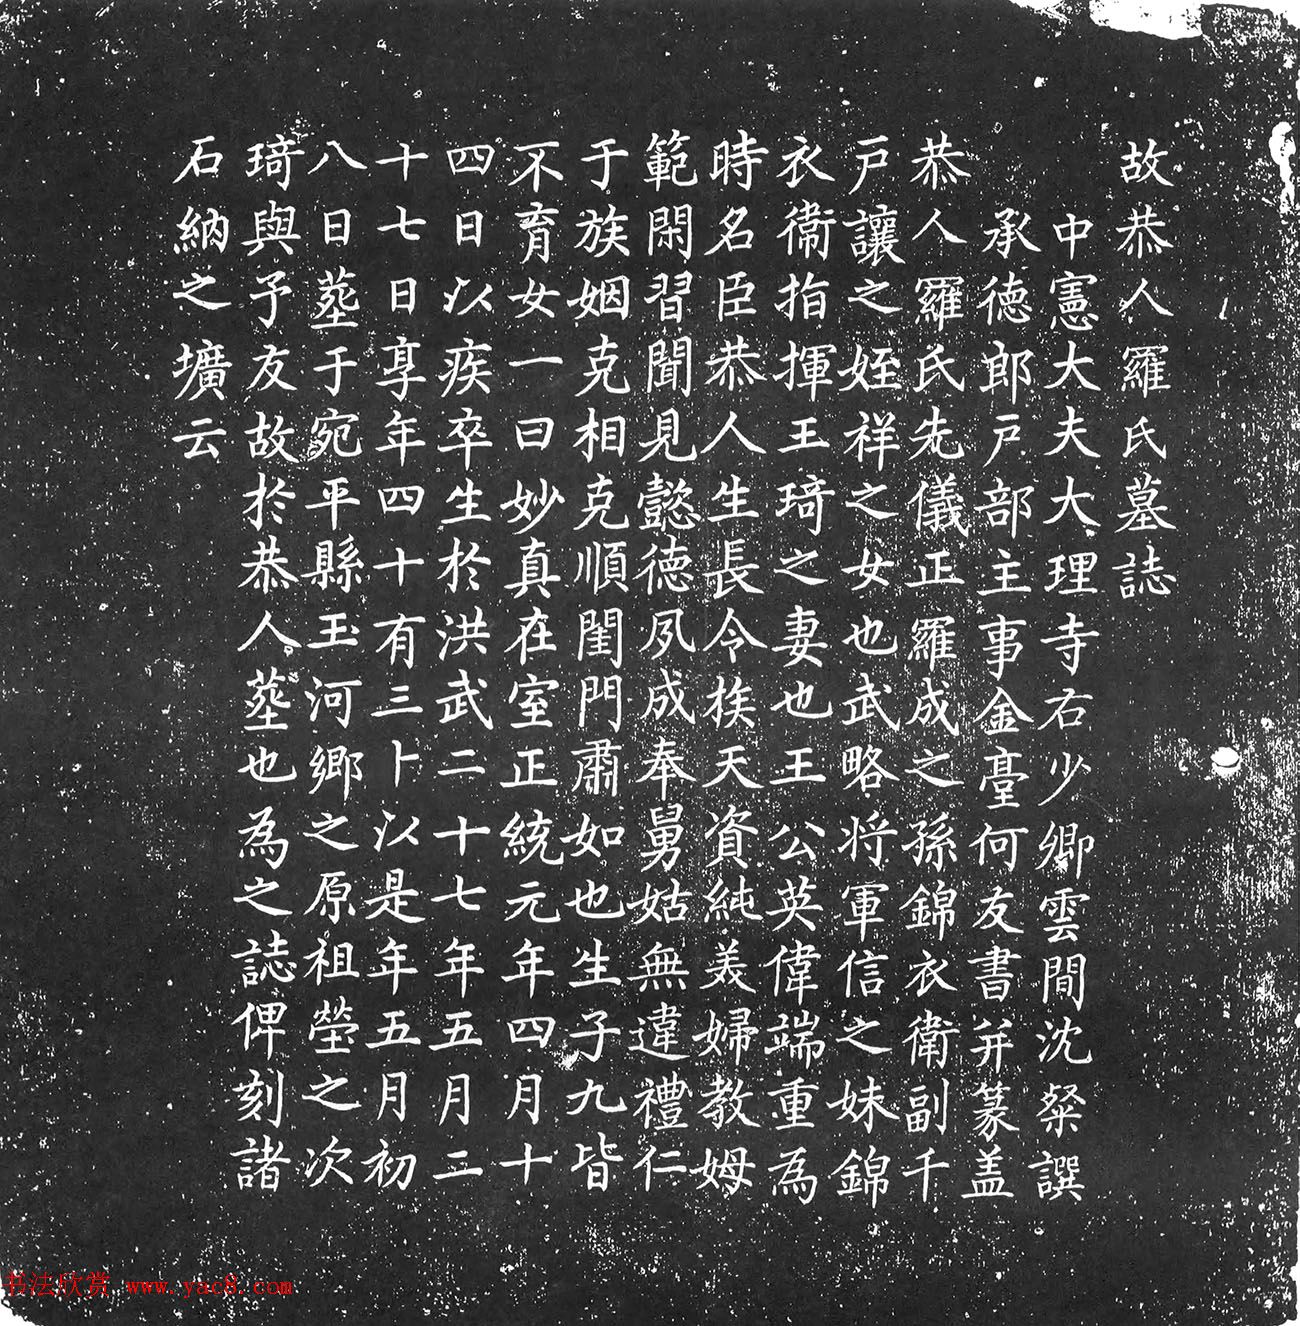 故恭人羅氏墓誌
中憲大夫大理寺右少卿雲間沈粲譔
承德郎戶部主事金臺何友書并篆盖
恭人羅氏先儀正羅成之孫錦衣衛副千
戶讓之姪祥之女也武略将軍信之妹錦
衣衛指揮王琦之妻也王公英偉端重為
時名臣恭人生長令族天資純美婦教姆
範閑習聞見懿德夙成奉舅姑無違禮仁
于族姻克相克順閨門肅如也生子九皆
不育女一曰妙真在室正統元年四月十
四日以疾卒生於洪武二十七年五月二
十七日享年四十有三卜以是年五月初
八日塟于宛平縣玉河鄉之原祖塋之次
琦與予友故於恭人塟也為之誌俾刻諸
石納之壙云
书法欣赏 www.yac8.com